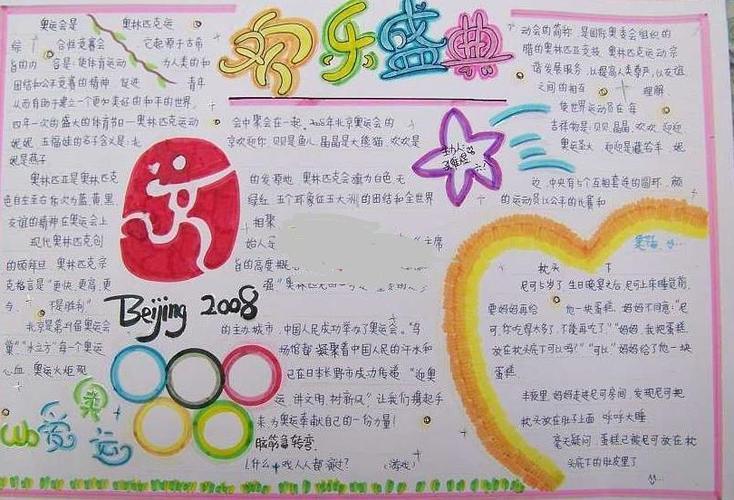 欢乐盛典
奥运会是 奥林匹克运
动会的简称 是国际奥委会组织的
综 合性竞赛会 它起源于古希
腊的奥林匹亚竞技 奥林匹克运动宗
旨的内 容是：使体育运动 为人类的和
谐发展服务，以提高人类尊严；以友谊
团结和公平竞赛的精神 促进 青年
之间的相互 理解
从而有助于建立一个更加美好的和平的世界
使世界运动员在每
四年一次的盛大的体育节日—奥林匹克运动
会中聚会在一起。2008年北京奥运会的
吉祥物是：贝贝 晶晶 欢欢 迎迎
妮妮 五福娃的名字含义是：北
京欢迎你 贝贝是鱼 晶晶是大熊猫 欢欢是
奥运圣火 迎迎是藏羚羊 妮
妮是燕子
主办人：
奥林匹亚是奥林匹克
的发源地 奥林匹克会旗为白色 无
边 中央有5个互相套连的圆环 颜
色自左至右依次为蓝 黄 黑
绿 红 五个环象征五大洲的团结和全世界
的运动员以公平的比赛和
友谊的精神在奥运会上
相聚
现代奥林匹克创
始人是
主席
的顾拜旦 奥林匹克宗
旨的高度概
克格言是"更快 更高 更
强"
今 不是胜利"
Beijing 2008
北京是第29届奥运会
的主办城市，中国人民成功举办了奥运会。"鸟
巢""水立方"每个奥运
场馆都凝聚着中国人民的汗水和
心血 奥运火炬现
已在日本长野市成功传递 "迎奥
运 讲文明 树新风" 让我们携起手
来为奥运奉献自己的一份力量！
我爱奥运
脑筋急转弯
1.什么 戏人人都演过？ （游戏）
枕头 下
尼可5岁了 生日晚宴之后 尼可上床睡觉前，
要妈妈再给 他一块蛋糕 妈妈不同意："尼
可，你吃得太多了，不能再吃了" "妈妈 我把蛋糕
放在枕头底下可以吗？" "可以" 妈妈给了他一块
蛋糕
半夜里 妈妈走进尼可房间，发现尼可把
枕头放在肚子上面 呼呼大睡
毫无疑问 蛋糕已被尼可放在枕
头底下的肚皮里了